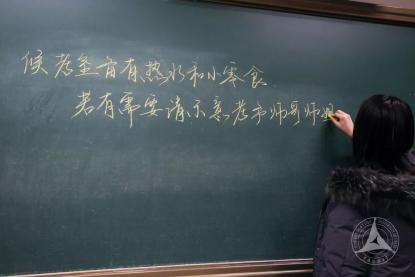 候考室有热水和小零食
若有需要请示意考务师哥师姐